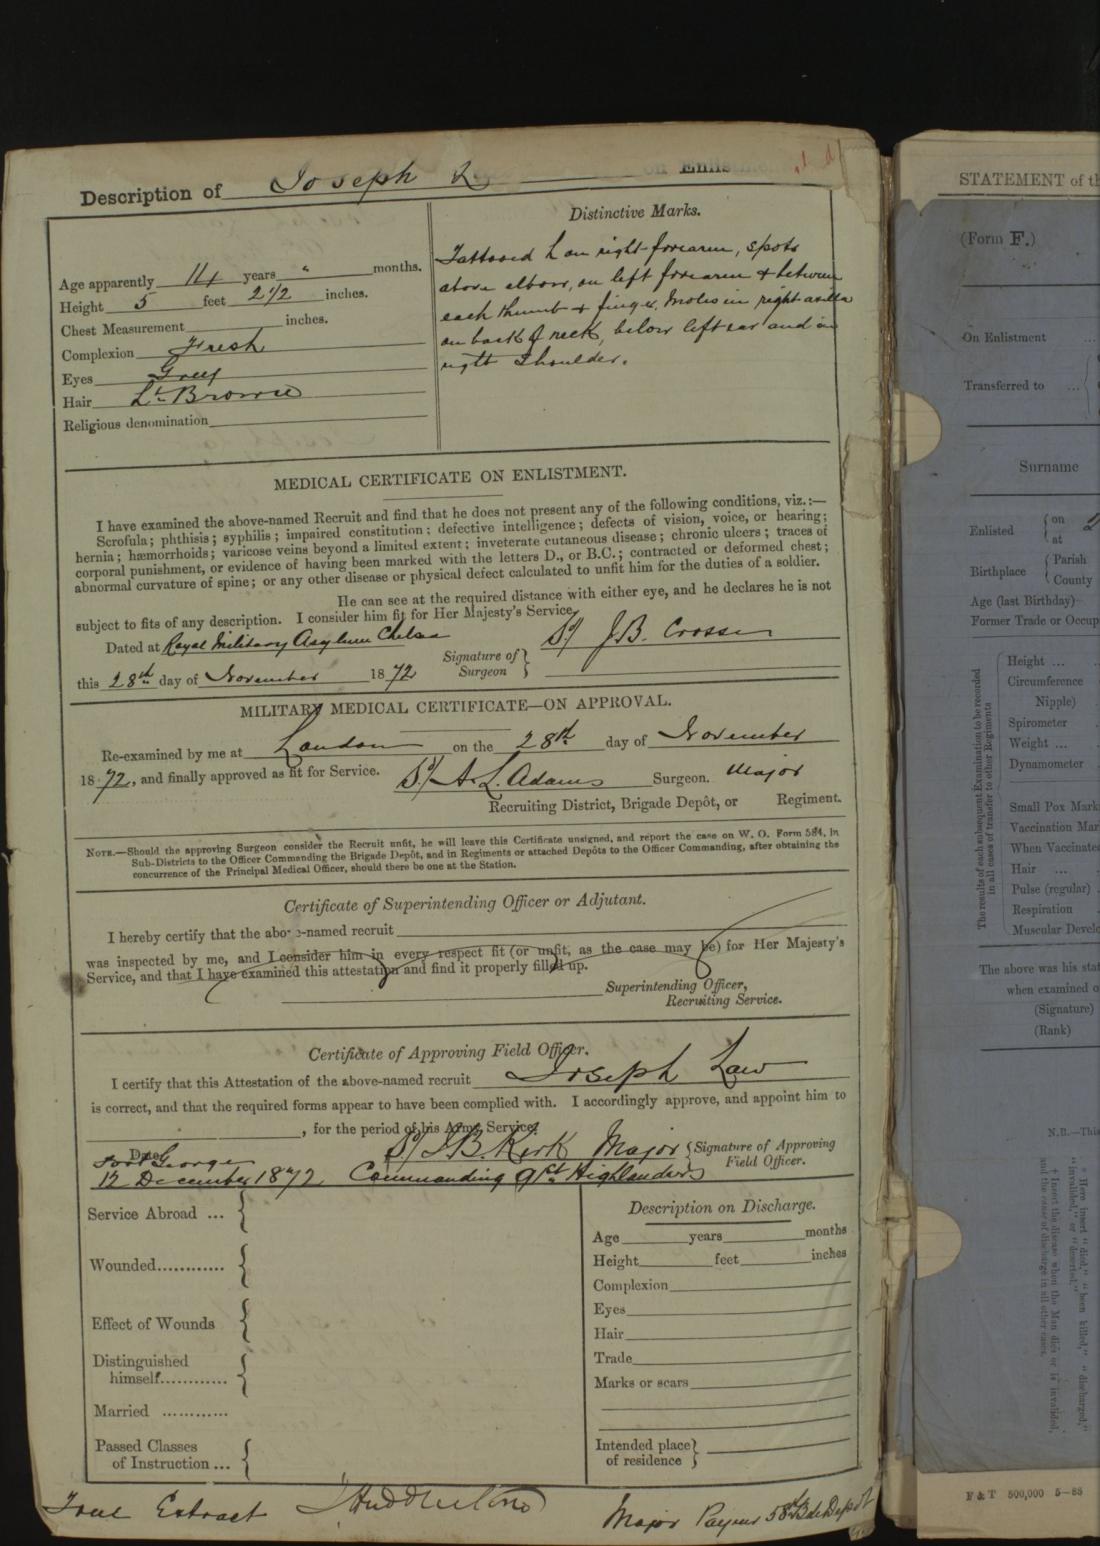 on Enlis
Description of Joseph L
Distinctive Marks.
Tattooed L on right forearm, spots
above elbow, on left forearm & between
each thumb & finger, Moles in right axilla
on back of neck, below left ear and on
right Shoulder.
Age apparently 14 years " months.
Height 5 feet 2 1/2 inches.
Chest Measurement inches.
Complexion Fresh
Eyes Grey
Hair Lt. Brown
Religious denomination
MEDICAL CERTIFICATE ON ENLISTMENT.
I have examined the above-named Recruit and find that he does not present any of the following conditions, viz.:—
Scrofula; phthisis; syphilis; impaired constitution; defective intelligence; defects of vision, voice, or hearing;
hernia; hæmorrhoids; varicose veins beyond a limited extent; inveterate cutaneous disease; chronic ulcers; traces of
corporal punishment, or evidence of having been marked with the letters D., or B.C.; contracted or deformed chest;
abnormal curvature of spine; or any other disease or physical defect calculated to unfit him for the duties of a soldier.
He can see at the required distance with either eye, and he declares he is not
subject to fits of any description. I consider him fit for Her Majesty's Service,
Dated at Royal Military Asylum Chelsea
this 28th day of November 1872
Signature of Surgeon } Sd/ J.B. Crosse
MILITARY MEDICAL CERTIFICATE—ON APPROVAL.
Re-examined by me at London on the 28th day of November
1872, and finally approved as fit for Service. Sd/ A.L. Adams Surgeon. Major
Recruiting District, Brigade Depôt, or Regiment.
NOTE.—Should the approving Surgeon consider the Recruit unfit, he will leave this Certificate unsigned, and report the case on W. O. Form 584, in
Sub-Districts to the Officer Commanding the Brigade Depôt, and in Regiments or attached Depôts to the Officer Commanding, after obtaining the
concurrence of the Principal Medical Officer, should there be one at the Station.
Certificate of Superintending Officer or Adjutant.
I hereby certify that the above-named recruit
was inspected by me, and I consider him in every respect fit (or unfit, as the case may be) for Her Majesty's
Service, and that I have examined this attestation and find it properly filled up.
Superintending Officer,
Recruiting Service.
Certificate of Approving Field Officer.
I certify that this Attestation of the above-named recruit Joseph Law
is correct, and that the required forms appear to have been complied with. I accordingly approve, and appoint him to
, for the period of his Army Service.
Date Sd/ J.B. Kirk Major { Signature of Approving
Fort George Field Officer.
12 December 1872 Commanding 91st Highlanders
Service Abroad ...
Wounded............
Effect of Wounds
Distinguished
himself............
Married ............
Passed Classes
of Instruction ...
Description on Discharge.
Age years months
Height feet inches
Complexion
Eyes
Hair
Trade
Marks or scars
Intended place
of residence
True Extract
Major Paymr 58th Bde Depot
STATEMENT of th
(Form F.)
On Enlistment ...
Transferred to ...
Surname
Enlisted { on
at
Birthplace { Parish
County
Age (last Birthday)
Former Trade or Occup
The results of each subsequent Examination to be recorded
in all cases of transfer to other Regiments
Height ...
Circumference
Nipple)
Spirometer
Weight ...
Dynamometer
Small Pox Mark
Vaccination Mar
When Vaccinated
Hair ...
Pulse (regular)
Respiration
Muscular Develo
The above was his stat
when examined o
(Signature)
(Rank)
N.B.—This
* Here insert "died," "been killed," "discharged,"
"invalided," or "deserted."
† Insert the disease when the Man dies or is invalided,
and the cause of discharge in all other cases.
F & T 500,000 5—85